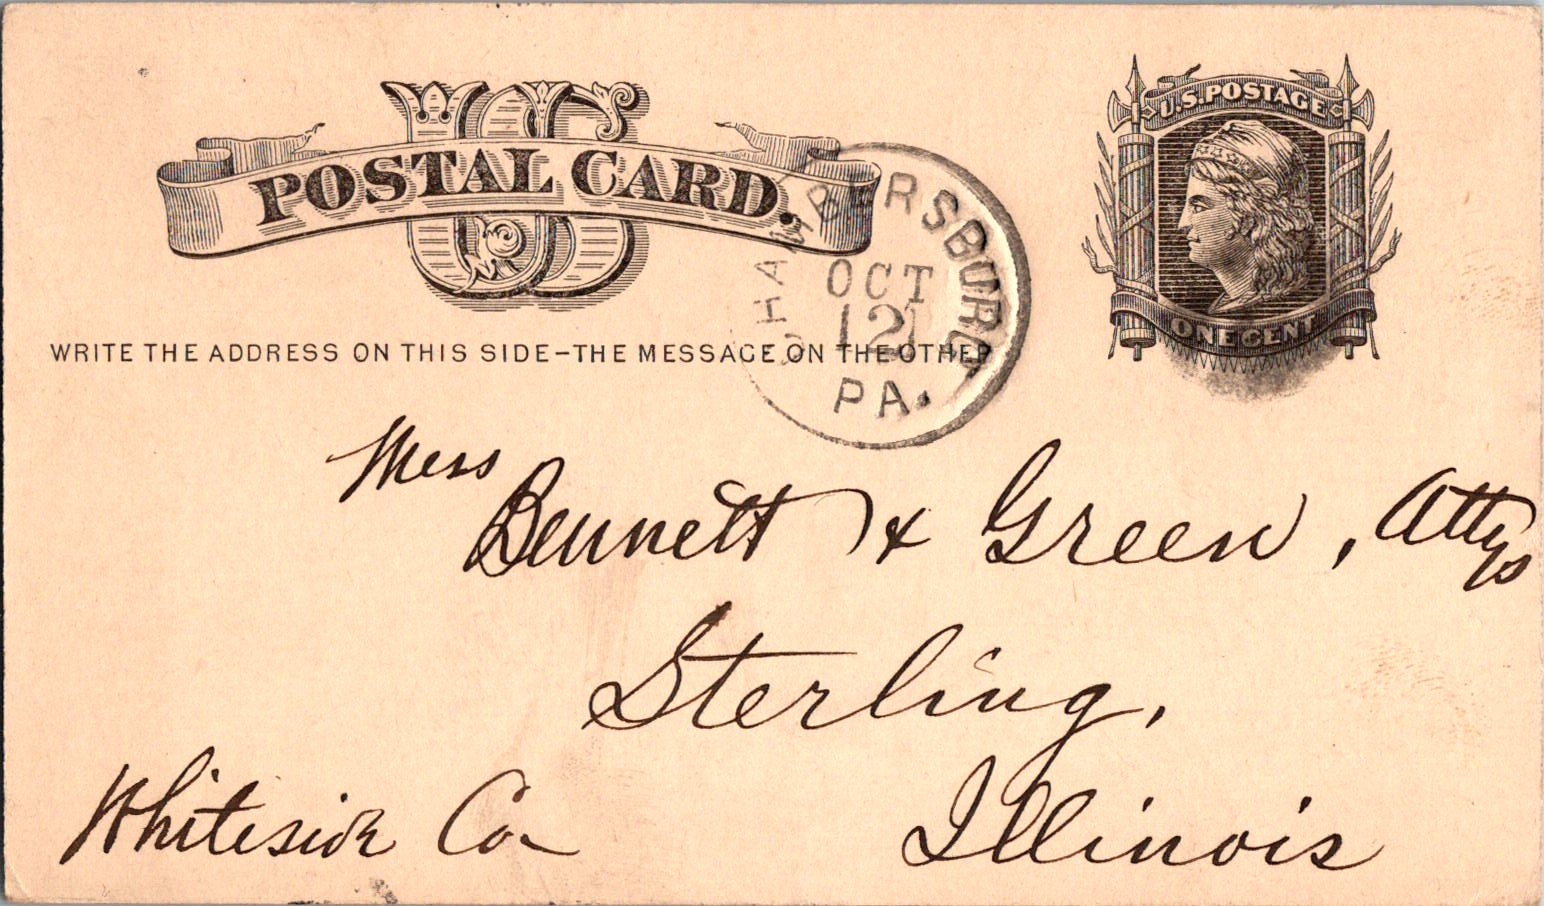 US
POSTAL CARD.
U.S. POSTAGE
ONE CENT
CHAMBERSBURG
OCT
12
PA.
WRITE THE ADDRESS ON THIS SIDE-THE MESSAGE ON THE OTHER
Mess
Bennett & Green, Attys
Sterling,
Illinois
Whiteside Co